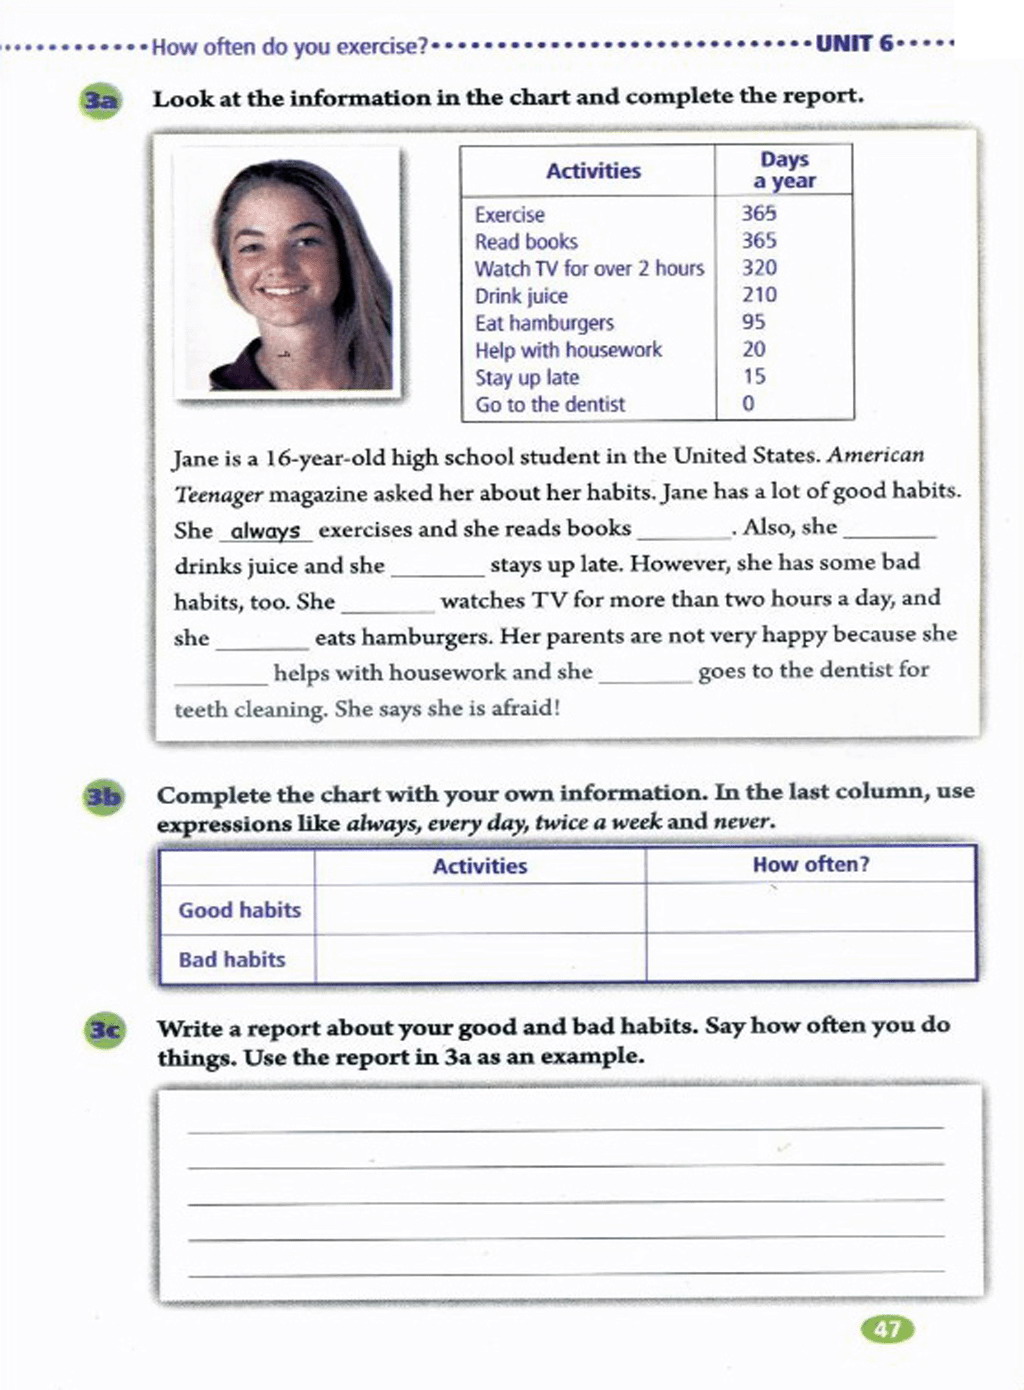 How often do you exercise? UNIT 6
3a Look at the information in the chart and complete the report.
Activities Days a year
Exercise 365
Read books 365
Watch TV for over 2 hours 320
Drink juice 210
Eat hamburgers 95
Help with housework 20
Stay up late 15
Go to the dentist 0
Jane is a 16-year-old high school student in the United States. American
Teenager magazine asked her about her habits. Jane has a lot of good habits.
She always exercises and she reads books ________. Also, she ________
drinks juice and she ________ stays up late. However, she has some bad
habits, too. She ________ watches TV for more than two hours a day, and
she ________ eats hamburgers. Her parents are not very happy because she
________ helps with housework and she ________ goes to the dentist for
teeth cleaning. She says she is afraid!
3b Complete the chart with your own information. In the last column, use
expressions like always, every day, twice a week and never.
Activities How often?
Good habits
Bad habits
3c Write a report about your good and bad habits. Say how often you do
things. Use the report in 3a as an example.
47